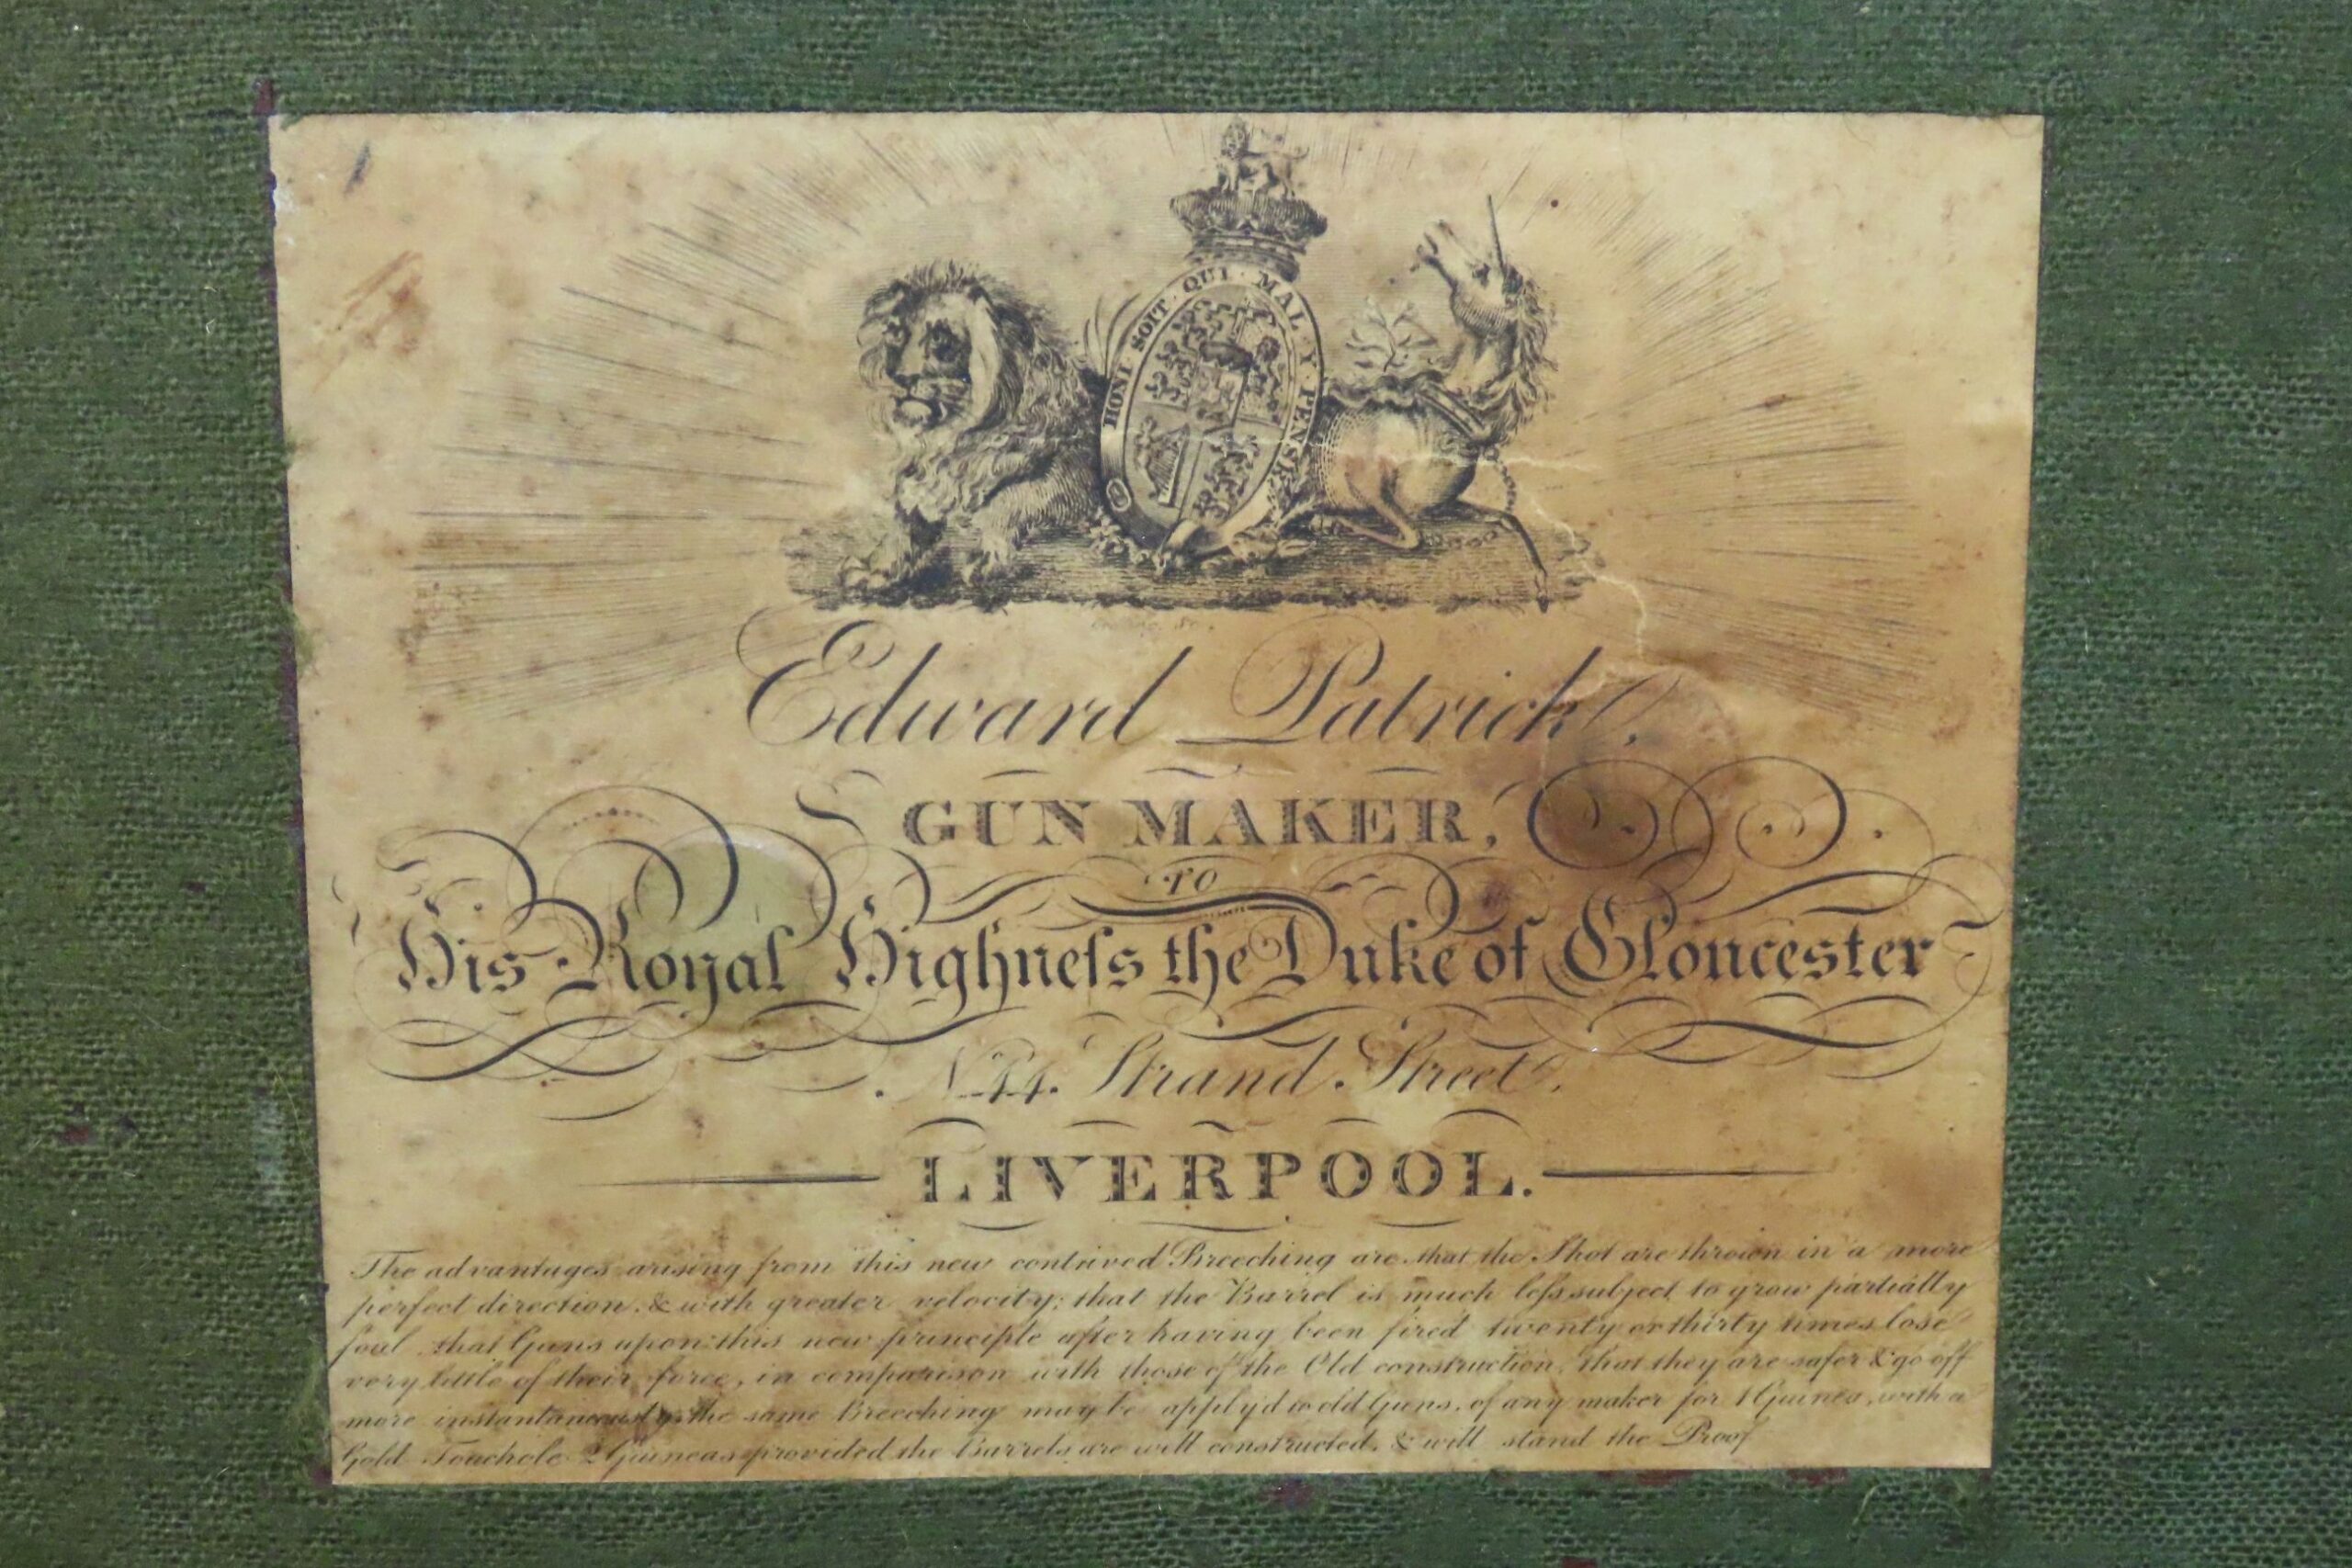 HONI · SOIT · QUI · MAL · Y · PENSE
Edward Patrick,
GUN MAKER,
TO
His Royal Highneſs the Duke of Gloucester
Strand Street,
LIVERPOOL.
The advantages arising from this new contrived Breeching are that the Shot are thrown in a more
perfect direction, & with greater velocity; that the Barrel is much leſs subject to grow partially
foul that Guns upon this new principle after having been fired twenty or thirty times lose
very little of their force, in comparison with those of the Old construction, that they are safer & go off
more instantaneously the same Breeching may be apply'd to old Guns, of any maker for 1 Guinea, with a
Gold Touchole 2 Guineas provided the Barrels are well constructed, & will stand the Proof